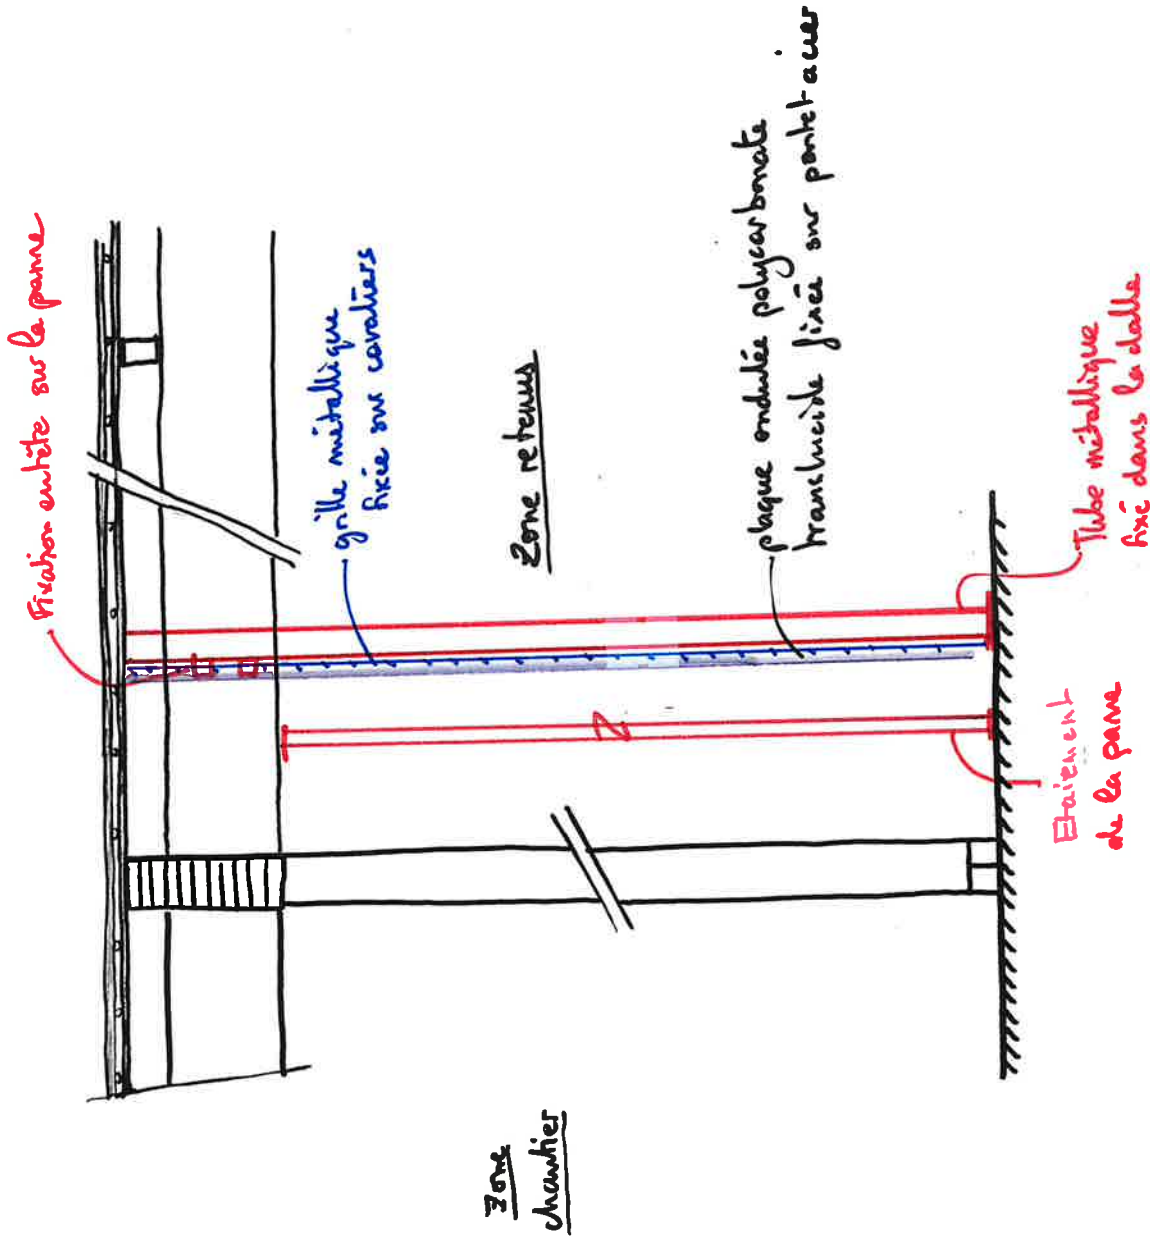 Fixation entête sur la panne
grille métallique
fixée sur cavaliers
Zone retenus
plaque ondulée polycarbonate
translucide fixée sur partet acier
Tube métallique
fixé dans la dalle
Etaiement
de la panne
Zone
chantier